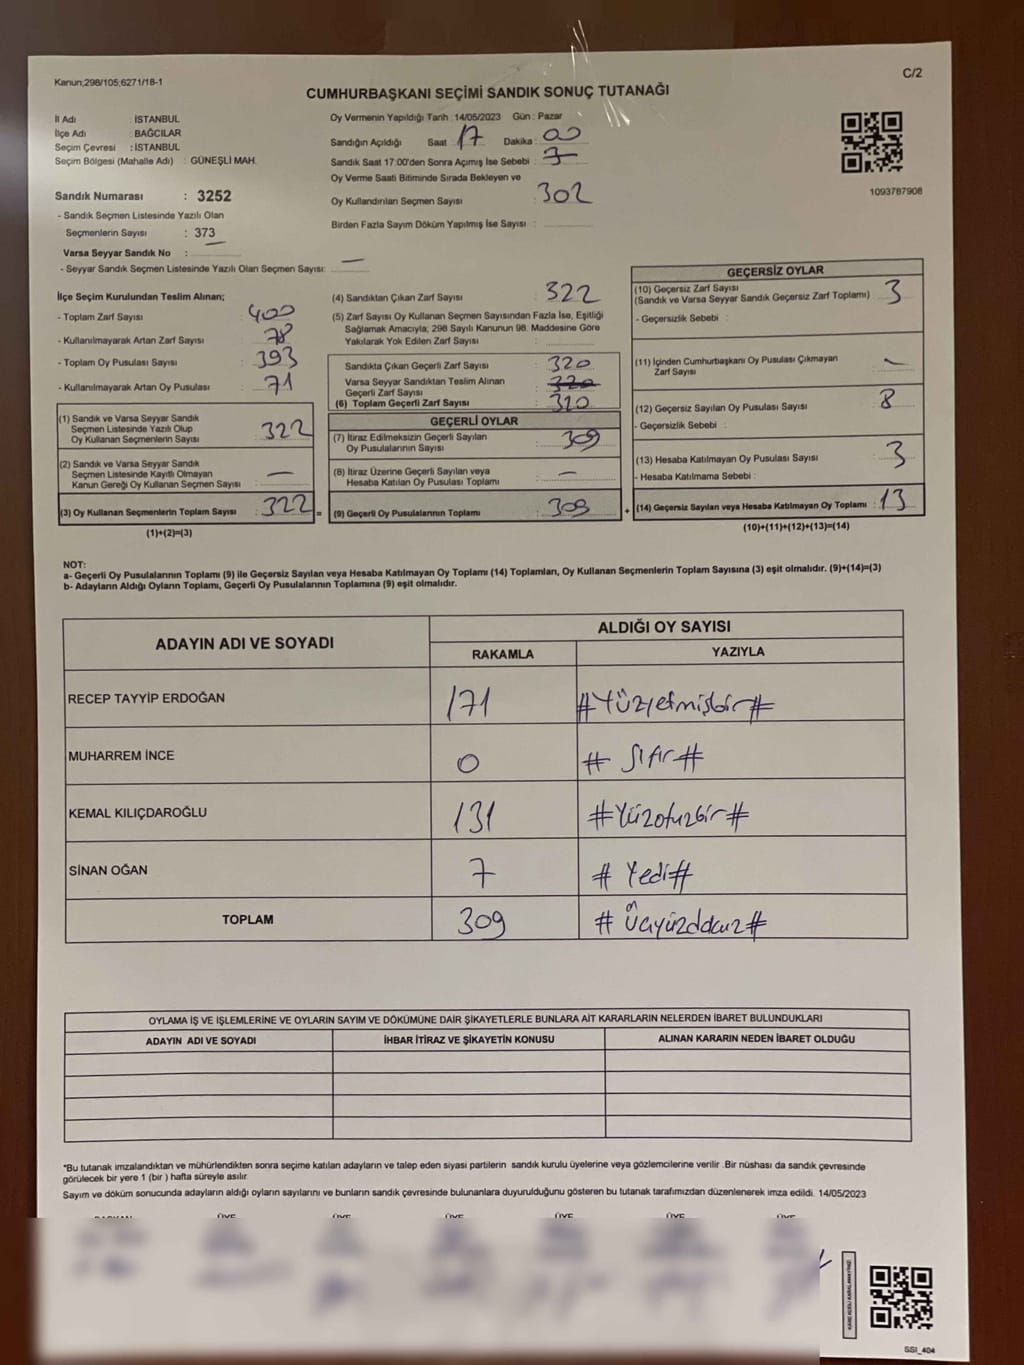 Kanun;298/105;6271/18-1
C/2
CUMHURBAŞKANI SEÇİMİ SANDIK SONUÇ TUTANAĞI
İl Adı : İSTANBUL
İlçe Adı : BAĞCILAR
Seçim Çevresi : İSTANBUL
Seçim Bölgesi (Mahalle Adı) : GÜNEŞLİ MAH.
Sandık Numarası : 3252
- Sandık Seçmen Listesinde Yazılı Olan
Seçmenlerin Sayısı : 373
Varsa Seyyar Sandık No :
- Seyyar Sandık Seçmen Listesinde Yazılı Olan Seçmen Sayısı: —
Oy Vermenin Yapıldığı Tarih : 14/05/2023 Gün : Pazar
Sandığın Açıldığı Saat 17 Dakika : 00
Sandık Saat 17:00'den Sonra Açımış İse Sebebi :
Oy Verme Saati Bitiminde Sırada Bekleyen ve
Oy Kullandırılan Seçmen Sayısı : 302
Birden Fazla Sayım Döküm Yapılmış İse Sayısı :
1093787908
İlçe Seçim Kurulundan Teslim Alınan;
- Toplam Zarf Sayısı : 400
- Kullanılmayarak Artan Zarf Sayısı : 78
- Toplam Oy Pusulası Sayısı : 393
- Kullanılmayarak Artan Oy Pusulası : 71
(1) Sandık ve Varsa Seyyar Sandık
Seçmen Listesinde Yazılı Olup
Oy Kullanan Seçmenlerin Sayısı : 322
(2) Sandık ve Varsa Seyyar Sandık
Seçmen Listesinde Kayıtlı Olmayan
Kanun Gereği Oy Kullanan Seçmen Sayısı : —
(3) Oy Kullanan Seçmenlerin Toplam Sayısı : 322 =
(1)+(2)=(3)
(4) Sandıktan Çıkan Zarf Sayısı : 322
(5) Zarf Sayısı Oy Kullanan Seçmen Sayısından Fazla İse, Eşitliği
Sağlamak Amacıyla; 298 Sayılı Kanunun 98. Maddesine Göre
Yakılarak Yok Edilen Zarf Sayısı :
Sandıkta Çıkan Geçerli Zarf Sayısı : 320
Varsa Seyyar Sandıktan Teslim Alınan
Geçerli Zarf Sayısı : 320
(6) Toplam Geçerli Zarf Sayısı : 320
GEÇERLİ OYLAR
(7) İtiraz Edilmeksizin Geçerli Sayılan
Oy Pusulalarının Sayısı : 309
(8) İtiraz Üzerine Geçerli Sayılan veya
Hesaba Katılan Oy Pusulası Toplamı : —
(9) Geçerli Oy Pusulalarının Toplamı : 309 +
GEÇERSİZ OYLAR
(10) Geçersiz Zarf Sayısı
(Sandık ve Varsa Seyyar Sandık Geçersiz Zarf Toplamı) : 3
- Geçersizlik Sebebi :
(11) İçinden Cumhurbaşkanı Oy Pusulası Çıkmayan
Zarf Sayısı : —
(12) Geçersiz Sayılan Oy Pusulası Sayısı : 8
- Geçersizlik Sebebi :
(13) Hesaba Katılmayan Oy Pusulası Sayısı : 3
- Hesaba Katılmama Sebebi :
(14) Geçersiz Sayılan veya Hesaba Katılmayan Oy Toplamı : 13
(10)+(11)+(12)+(13)=(14)
NOT:
a- Geçerli Oy Pusulalarının Toplamı (9) ile Geçersiz Sayılan veya Hesaba Katılmayan Oy Toplamı (14) Toplamları, Oy Kullanan Seçmenlerin Toplam Sayısına (3) eşit olmalıdır. (9)+(14)=(3)
b- Adayların Aldığı Oyların Toplamı, Geçerli Oy Pusulalarının Toplamına (9) eşit olmalıdır.
ADAYIN ADI VE SOYADI
ALDIĞI OY SAYISI
RAKAMLA YAZIYLA
RECEP TAYYİP ERDOĞAN 171 #Yüzyetmişbir#
MUHARREM İNCE 0 # Sıfır#
KEMAL KILIÇDAROĞLU 131 #Yüzotuzbir#
SİNAN OĞAN 7 # Yedi#
TOPLAM 309 # Üçyüzdokuz#
OYLAMA İŞ VE İŞLEMLERİNE VE OYLARIN SAYIM VE DÖKÜMÜNE DAİR ŞİKAYETLERLE BUNLARA AİT KARARLARIN NELERDEN İBARET BULUNDUKLARI
ADAYIN ADI VE SOYADI İHBAR İTİRAZ VE ŞİKAYETİN KONUSU ALINAN KARARIN NEDEN İBARET OLDUĞU
*Bu tutanak imzalandıktan ve mühürlendikten sonra seçime katılan adayların ve talep eden siyasi partilerin sandık kurulu üyelerine veya gözlemcilerine verilir .Bir nüshası da sandık çevresinde
görülecek bir yere 1 (bir ) hafta süreyle asılır.
Sayım ve döküm sonucunda adayların aldığı oyların sayılarını ve bunların sandık çevresinde bulunanlara duyurulduğunu gösteren bu tutanak tarafımızdan düzenlenerek imza edildi. 14/05/2023
BAŞKAN ÜYE ÜYE ÜYE ÜYE ÜYE ÜYE
SSI_404